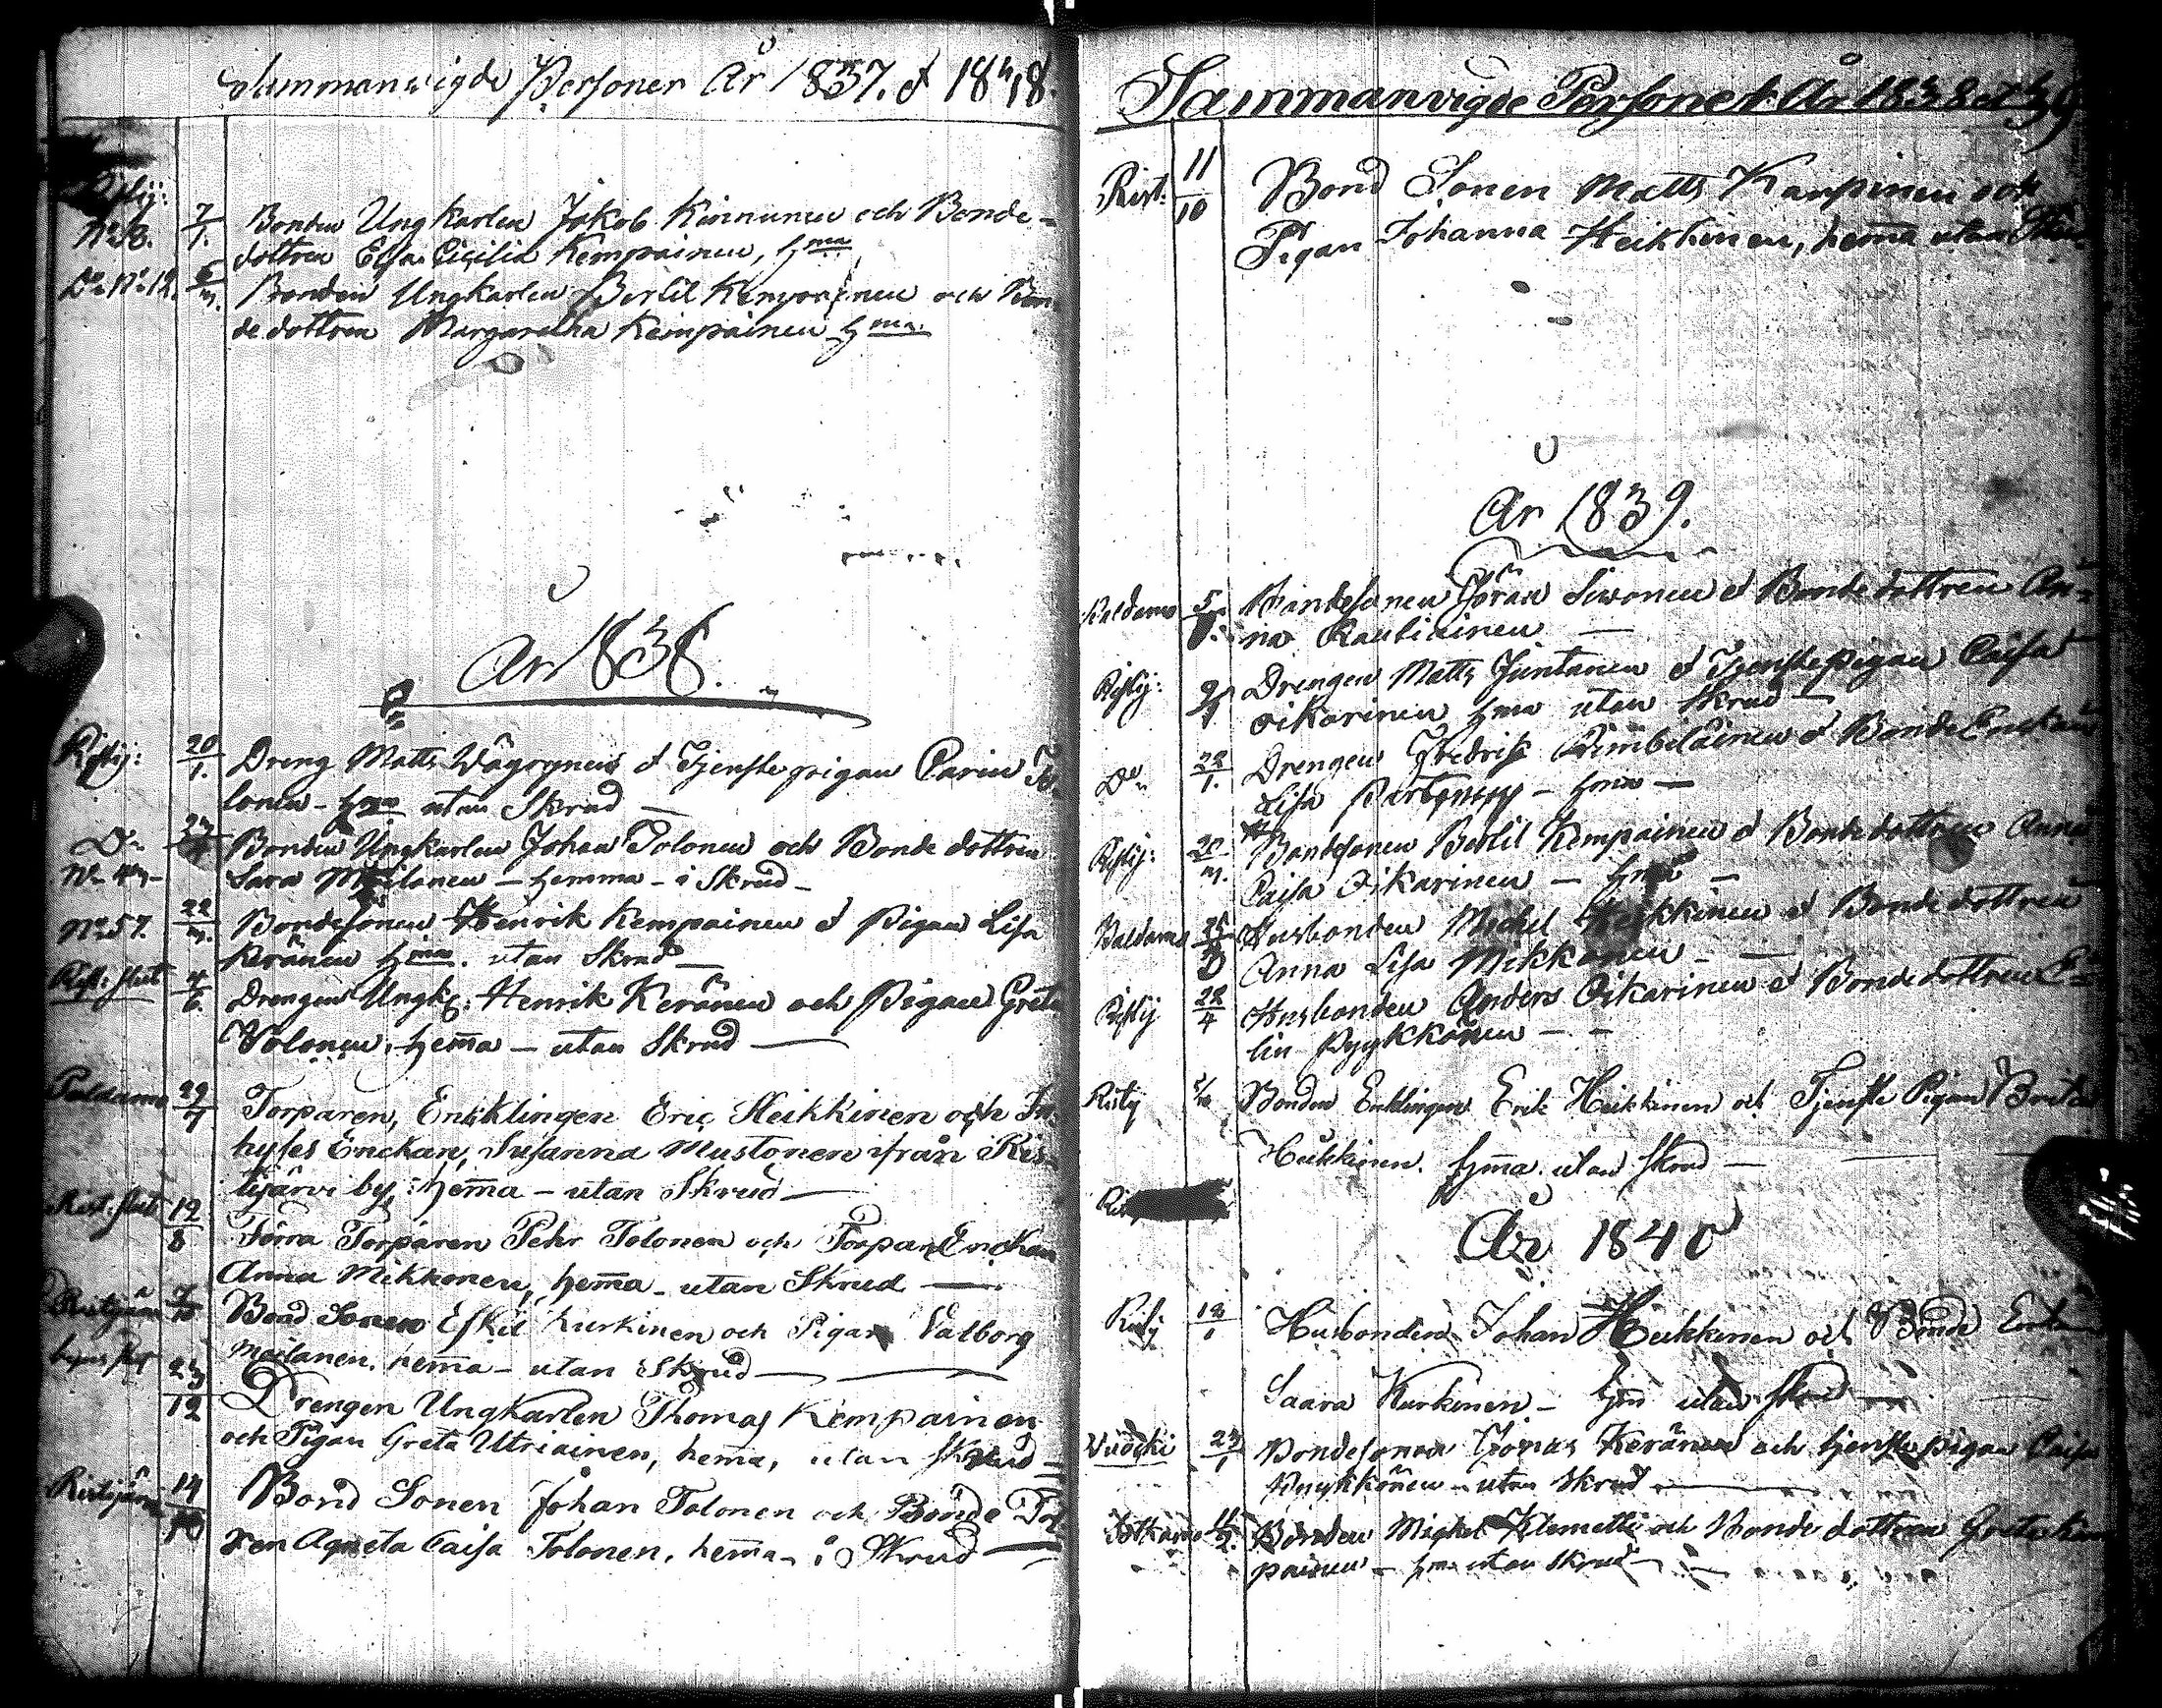 Sammanvigde Personer År 1837. & 1838.
Ristij:
No 18. 7/1. Bonden Ungkarlen Jakob Kinnunen och Bonde-
dottren Elsa Cicilia Kempainen, hma
Do No 12. Bonden Ungkarlen Bertil Kempainen och Bon-
de dottren Margaretha Kempainen hma
År 1838.
Ristij: 20/1. Dreng Matts Wäyrynen & Tjenste pigan Carin To-
lonen - hma utan Skrud
Do Bonden Ungkarlen Johan Tolonen och Bonde dottren
Sara Moilanen - hemma - i Skrud -
No 57. 22/3. Bondesonen Henrik Kempainen & Pigan Lisa
Keränen hma. utan Skrud
4/6. Drengen Ungk: Henrik Keränen och Pigan Greta
Tolonen, hema - utan Skrud
Paldamo 29/7 Torparen, Enkklingen Eric Heikkinen och In-
hyses Enckan, Susanna Mustonen ifrån Ris-
tijärvi by, hema - utan Skrud
12/8 Förra Torparen Pehr Tolonen och Torpar Enckan
Anna Mikkonen, hema - utan Skrud
Ristijärvi 7/10 Bond Sonen Eskil Kurkinen och Pigan Valborg
Moilanen, hema - utan Skrud
23/12 Drengen Ungkarlen Thomas Kempainen
och Pigan Greta Utriainen, hema, utan Skrud
Ristijärvi 14/10 Bond Sonen Johan Tolonen och Bonde Dot
ren Agneta Caisa Tolonen, hema - i Skrud
Sammanvigde Personer År 1838 et 39
Rist: 11/10 Bond Sonen Matts Karpinen och
Pigan Johanna Heikkinen, hema utan
År 1839.
Paldamo Bondesonen Göran Siwonen & Bonde dottren An-
na Rautiainen
Ristij: 9/1. Drengen Matts Juntunen & Tjenstepigan Caisa
Oikarinen hma utan Skrud
Do 22/1. Drengen Fredrik & Bonde Enckan
Lisa - hma
Ristij: 20/3. Bondesonen Bertil Kempainen & Bonde dottren Anna
Caisa Oikarinen - hma
Paldamo Husbonden Michel Heikkinen & Bonde dottren
Anna Lisa Mikkonen
Ristij 28/4 Husbonden Anders Oikarinen & Bonde dottren E-
lin Pyykkönen
Ristij Bonden Enklingen Erik Heikkinen och Tjenste Pigan Brita
Heikkinen. hma. utan Skrud
År 1840
Ristij Husbonden Johan Heikkinen och Bonde Enkan
Saara Kurkinen - hm utan Skrud
23/1 Bondesonen Jonas Keränen och tjenste pigan Caisa
Pyykkönen - utan Skrud
Sotkamo Bonden Michel Klemetti och Bonde dottren Greta Kem
painen - hma utan Skrud